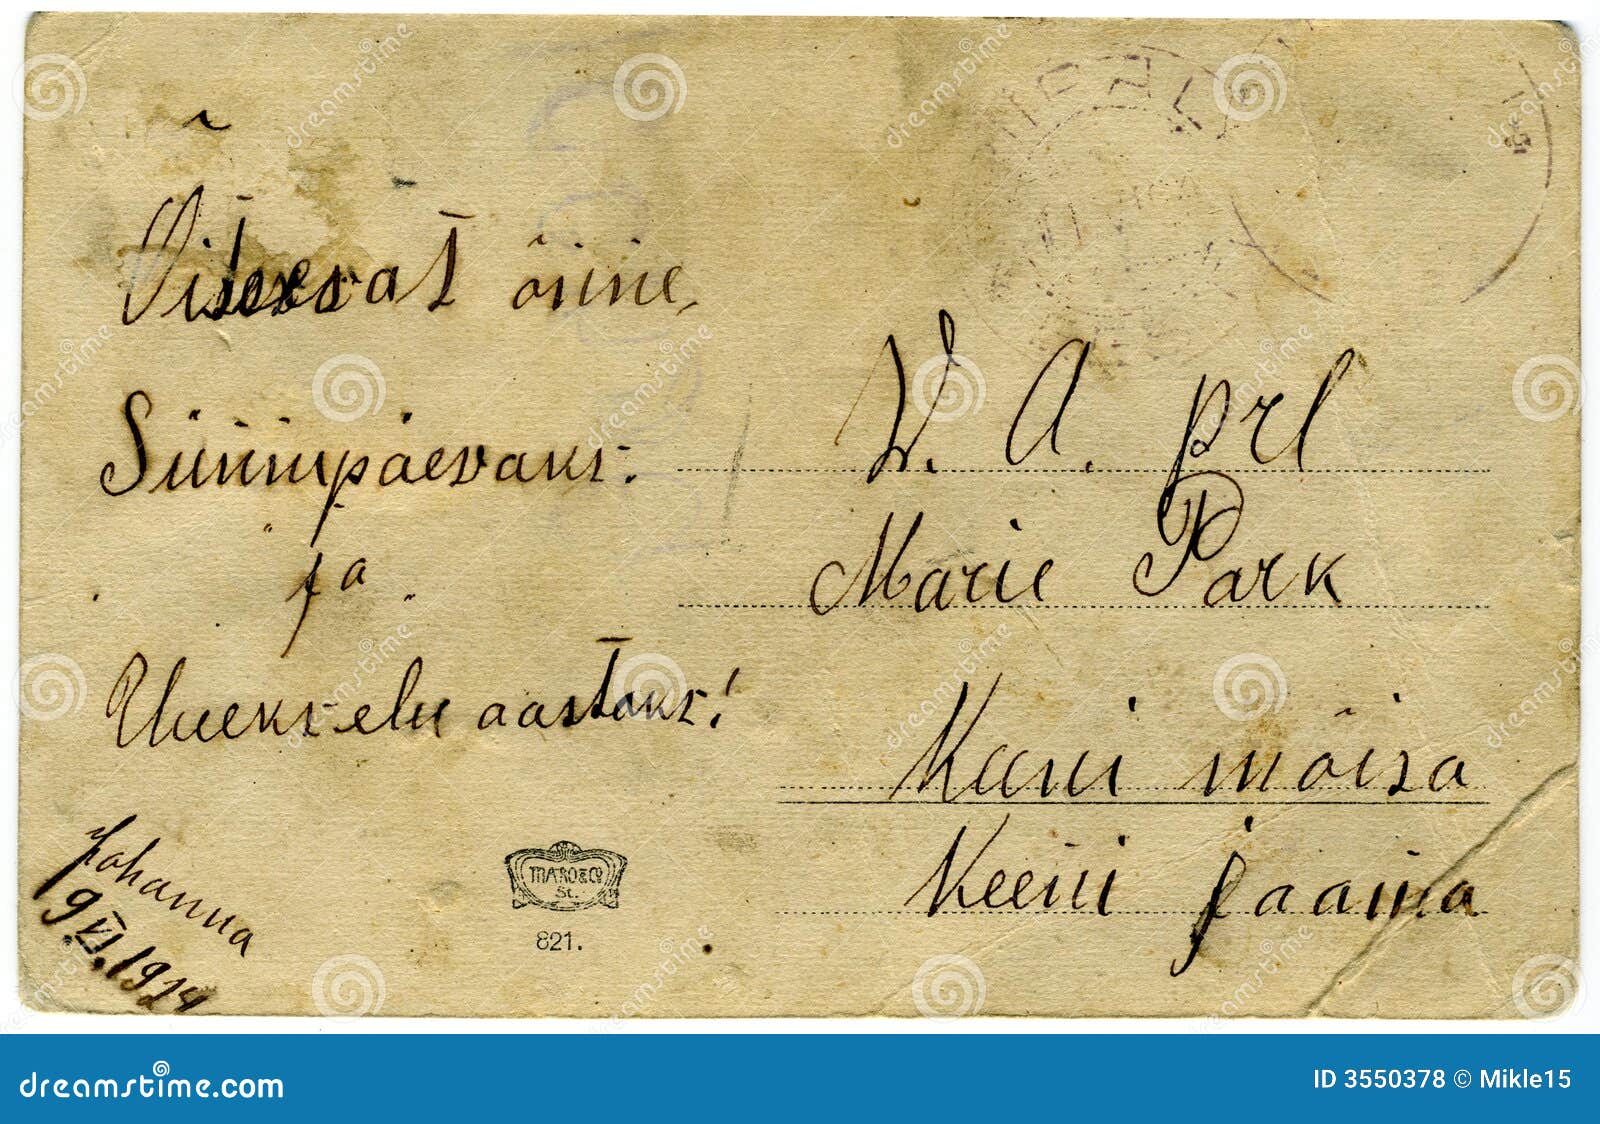 õnne
Sünnipäevaks.
ja
Uueks elu aastaks!
Johanna
9 VI. 1924
MARO & Co
St.
821.
W. A. prl
Marie Park
Keeni mõisa
Keeni jaama
dreamstime.com
ID 3550378 © Mikle15